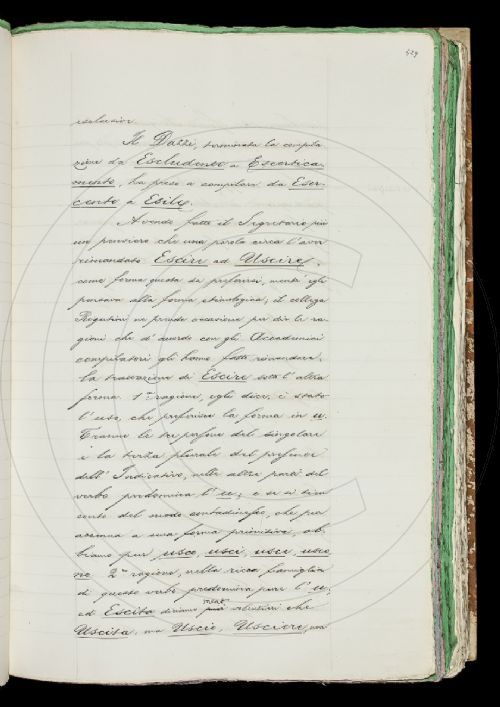 429
esclusione.
Il Dazzi, terminata la compila-
zione da Escludendo a Escortica-
mento, ha preso a compilare da Eser-
cente a Esile.
Avendo fatto il Segretario più
un pensiero che una parola circa l'aver
rimandato Escire ad Uscire,
come forma questa da preferirsi, mentr'egli
pensava alla forma etimologica, il collega
Rigutini ne prende occasione per dir le ra-
gioni che d'accordo con gli Accademici
compilatori gli hanno fatto rimandare
la trattazione di Escire sott'altra
forma. 1ª ragione, egli dice, è stato
l'uso, che preferisce la forma in u.
Tranne le tre persone del singolare
e la terza plurale del presente
dell'Indicativo, nelle altre parti del
verbo predomina l'u; e se si tien
conto del modo contadinesco, che può
accennare a una forma primitiva, ab-
biamo pure usco, usci, usce, usco-
no. 2ª ragione, nella ricca famiglia
di questo verbo predomina pure l'u,
ed Escita diciamo volentieri che
Uscita, ma Uscio, Usciere, non